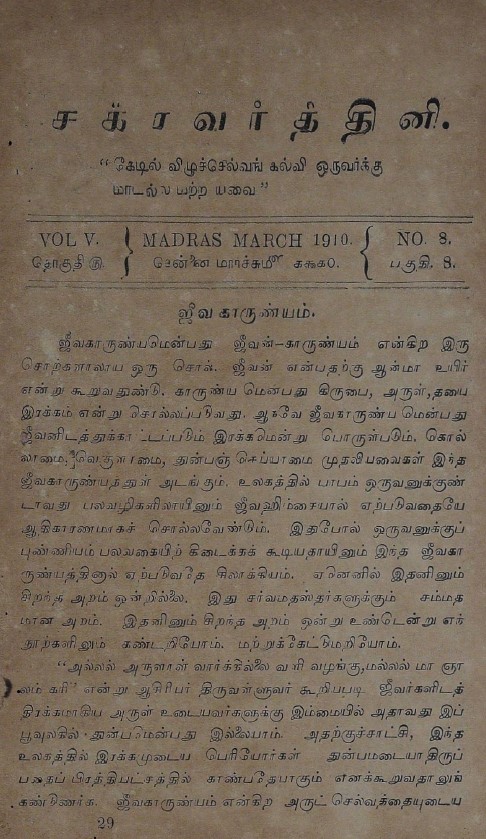 சக்ரவர்த்தினி.
“கேடில் விழுச்செல்வங் கல்வி ஒருவர்க்கு
மாடல்ல மற்ற யவை”
VOL V. MADRAS MARCH 1910. NO. 8.
தொகுதி ௫. சென்னை மார்ச்சுமீ ௧௯௧௦. பகுதி. 8.
ஜீவகாருண்யம்.
ஜீவகாருண்யமென்பது ஜீவன்–காருண்யம் என்கிற இரு
சொற்களாலாய ஒரு சொல். ஜீவன் என்பதற்கு ஆன்மா உயிர்
என்று கூறுவதுண்டு. காருண்ய மென்பது கிருபை, அருள், தயை
இரக்கம் என்று சொல்லப்படுவது. ஆகவே ஜீவகாருண்ய மென்பது
ஜீவனிடத்துக்காட்டப்படும் இரக்கமென்று பொருள்படும். கொல்
லாமை, வெகுளாமை, துன்பஞ் செய்யாமை முதலியவைகள் இந்த
ஜீவகாருண்யத்துள் அடங்கும். உலகத்தில் பாபம் ஒருவனுக்குண்
டாவது பலவழிகளிலாயினும் ஜீவஹிம்சையால் ஏற்படுவதையே
ஆதிகாரணமாகச் சொல்லவேண்டும். இதுபோல் ஒருவனுக்குப்
புண்ணியம் பலவகையிற் கிடைக்கக் கூடியதாயினும் இந்த ஜீவகா
ருண்யத்தினால் ஏற்படுவதே சிலாக்கியம். ஏனெனில் இதனினும்
சிறந்த அறம் ஒன்றில்லை. இது சர்வமதஸ்தர்களுக்கும் சம்மத
மான அறம். இதனினும் சிறந்த அறம் ஒன்று உண்டென்று எந்
நூற்களிலும் கண்டறியோம். மற்றுக்கேட்டுமறியோம்.
“அல்லல் அருளாள் வார்க்கில்லை வளி வழங்கு, மல்லல் மா ஞா
லம் கரி” என்று ஆசிரியர் திருவள்ளுவர் கூறியபடி ஜீவர்களிடத்
திரக்கமாகிய அருள் உடையவர்களுக்கு இம்மையில் அதாவது இப்
பூவுலகில் துன்பமென்பது இல்லையாம். அதற்குச்சாட்சி, இந்த
உலகத்தில் இரக்கமுடைய பெரியோர்கள் துன்பமடையாதிருப்
பதைப் பிரத்தியட்சத்தில் காண்பதேயாகும் எனக்கூறுவதாலுங்
கண்டுணர்க. ஜீவகாருண்யம் என்கிற அருட் செல்வத்தையுடைய
29